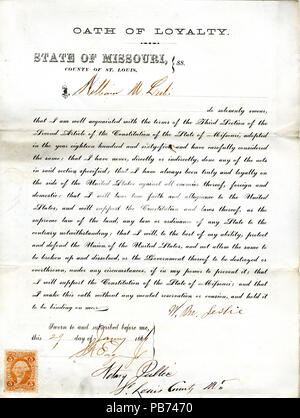 OATH OF LOYALTY.
STATE OF MISSOURI,
COUNTY OF ST. LOUIS,
ss.
I, William M
do solemnly swear,
that I am well acquainted with the terms of the Third Section of the
Second Article of the Constitution of the State of Missouri, adopted
in the year eighteen hundred and sixty-five, and have carefully considered
the same; that I have never, directly or indirectly, done any of the acts
in said section specified; that I have always been truly and loyally on
the side of the United States against all enemies thereof, foreign and
domestic; that I will bear true faith and allegiance to the United
States, and will support the Constitution and laws thereof, as the
supreme law of the land, any law or ordinance of any State to the
contrary notwithstanding; that I will, to the best of my ability, protect
and defend the Union of the United States, and not allow the same to
be broken up and dissolved, or the Government thereof to be destroyed or
overthrown, under any circumstances, if in my power to prevent it; that I
will support the Constitution of the State of Missouri; and that I
make this oath without any mental reservation or evasion, and hold it
to be binding on me.
Sworn to and subscribed before me,
this 29 day of 186
Notary Public
St Louis County Mo
alamy
Image ID: PB7470
www.alamy.com